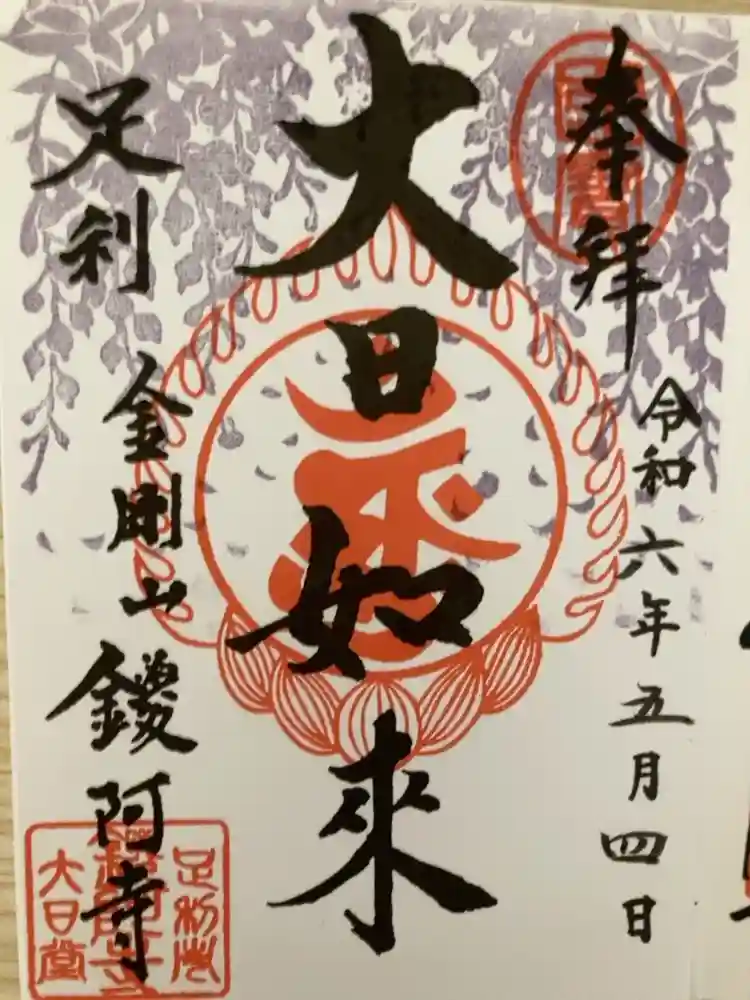 奉拝
令和六年五月四日
大日如來
足利
金剛山
鑁阿寺
足利庄
鑁阿寺
大日堂